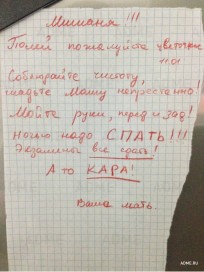 Мишаня !!!
Полей пожалуйста цветочки
Соблюдайте чистоту,
гладьте Машу непрестанно!
Мойте руки, перед и зад!
Ночью надо СПАТЬ!!!
Экзамены все сдать!
А то КАРА!
Ваша мать.
ADME.RU